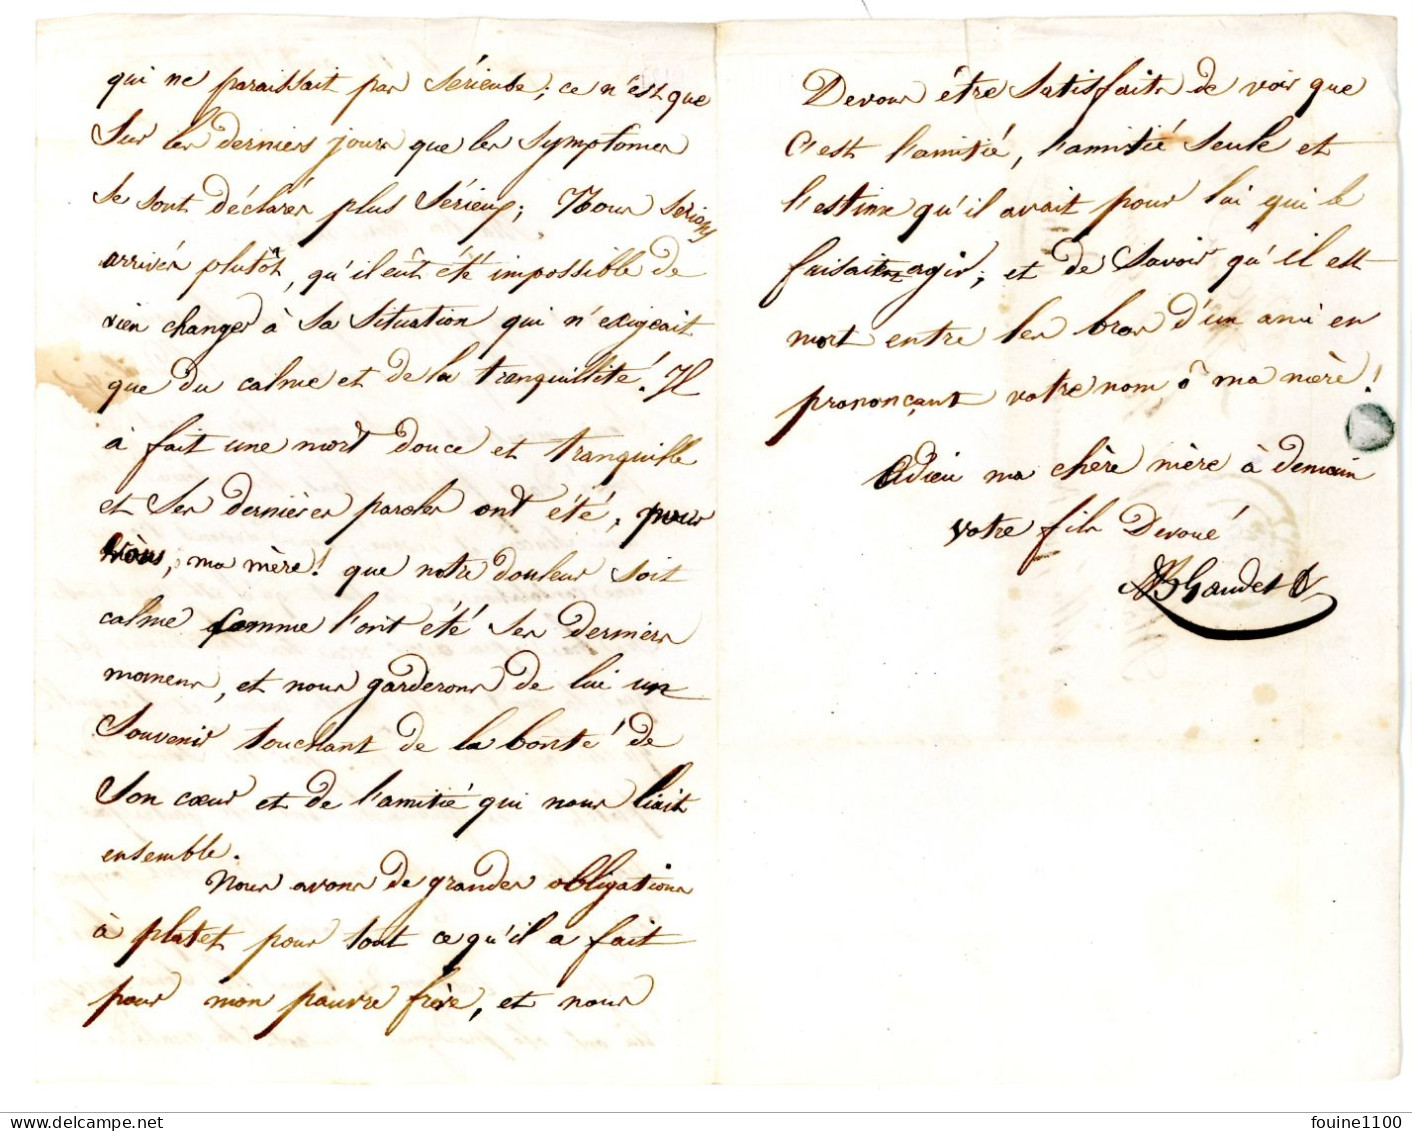 qui ne paraissait pas sérieuse; ce n'est que
sur les derniers jours que les symptomes
se sont déclarés plus sérieux; Nous serions
arrivés plutôt, qu'il eût été impossible de
rien changer à sa situation qui n'exigeait
que du calme et de la tranquillité. Il
à fait une mort douce et tranquille
et ses dernières paroles ont été, pour
vous, ma mère! que notre douleur soit
calme comme l'ont été ses derniers
momens, et nous garderons de lui un
souvenir touchant de la bonté de
son cœur et de l'amitié qui nous liait
ensemble.
Nous avons de grandes obligations
à platet pour tout ce qu'il a fait
pour mon pauvre frère, et nous
Devons être satisfaits de voir que
c'est l'amitié, l'amitié seule et
l'estime qu'il avait pour lui qui le
faisait agir; et de savoir qu'il est
mort entre les bras d'un ami en
prononçant votre nom, ô ma mère!
Adieu ma chère mère à demain
votre fils Devoué
Gaudet
delcampe.net
fouine1100